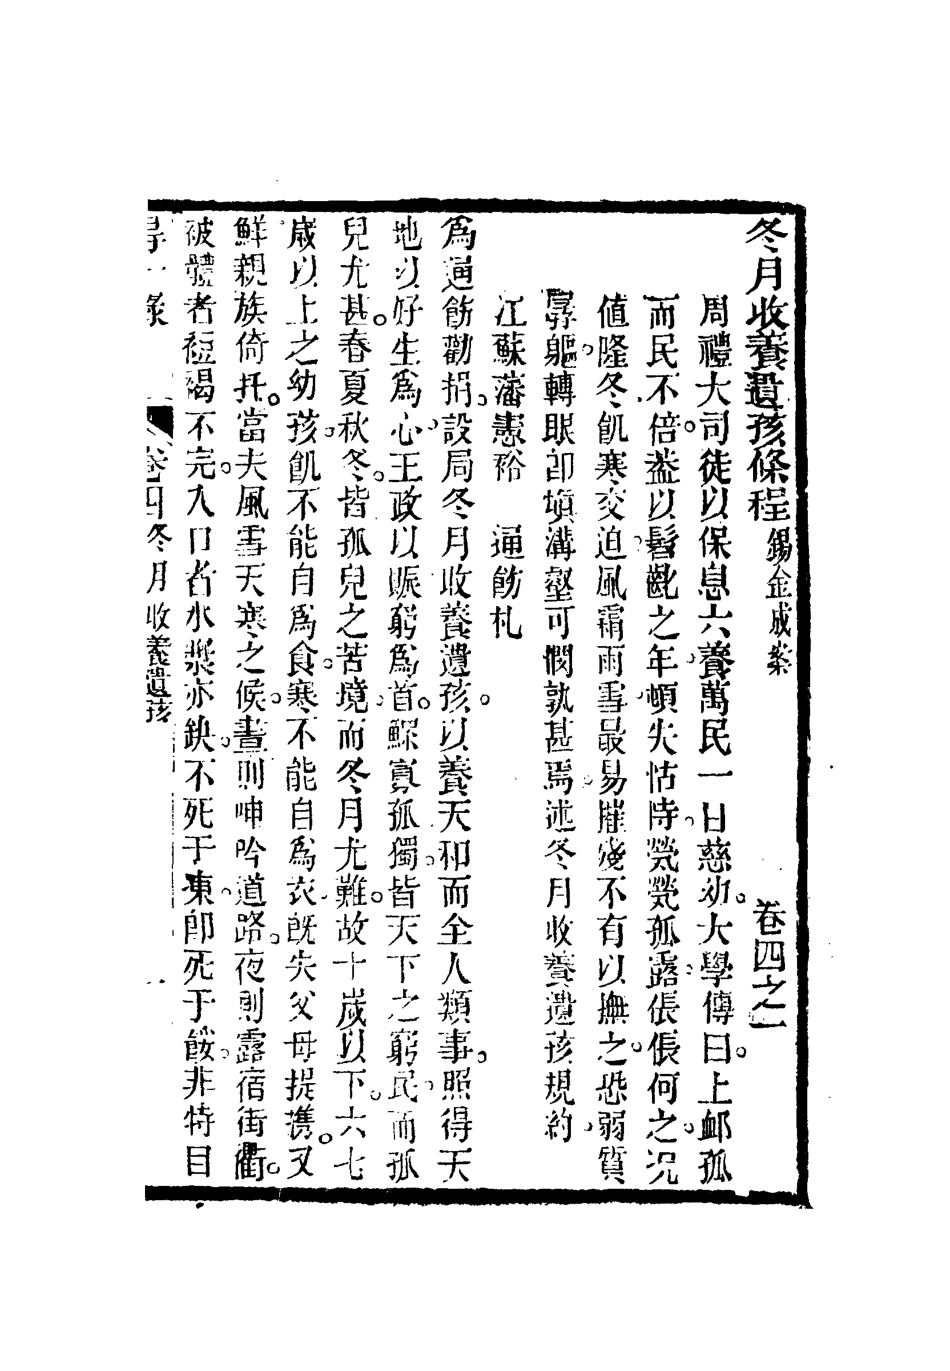 冬月收養遺孩條程 錫金成案 卷四之一
周禮大司徒以保息六養萬民一曰慈幼。大學傳曰。上卹孤
而民不倍。蓋以髫齔之年。頓失怙恃。煢煢孤露。倀倀何之。况
值隆冬飢寒交迫。風霜雨雪。最易摧殘。不有以撫之。恐弱質
孱軀。轉眼卽塡溝壑。可憫孰甚焉。述冬月收養遺孩規約
江蘇藩憲裕 通飭札
爲通飭勸捐。設局冬月收養遺孩。以養天和而全人類事。照得天
地以好生爲心。王政以賑窮爲首。鰥寡孤獨。皆天下之窮民。而孤
兒尤甚。春夏秋冬。皆孤兒之苦境。而冬月尤難。故十歲以下。六七
歲以上之幼孩。飢不能自爲食。寒不能自爲衣。旣失父母提携。又
鮮親族倚托。當夫風雪天寒之候。晝則呻吟道路。夜則露宿街衢。
被體者短褐不完。入口者水漿亦缺。不死于凍。卽死于餒。非特目
得一錄 卷四冬月收養遺孩 一